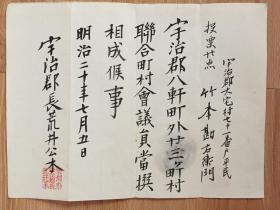 宇治郡大宅村七十一番戸平民
投票廿点　竹本勘右衛門
宇治郡八軒町外廿三ヶ町村
聯合町村會議員當撰
相成候事
明治二十年七月五日
宇治郡長荒井公木